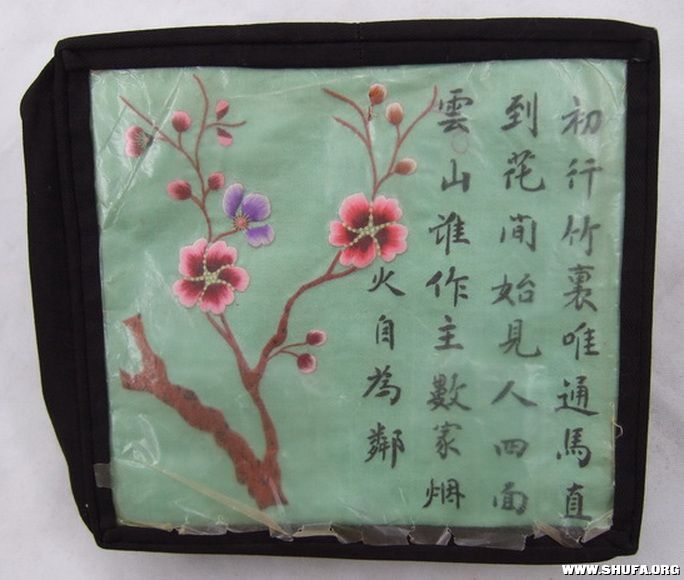 初行竹裏唯通馬直
到花间始見人四面
雲山谁作主數家烟
火自為鄰
WWW.SHUFA.ORG